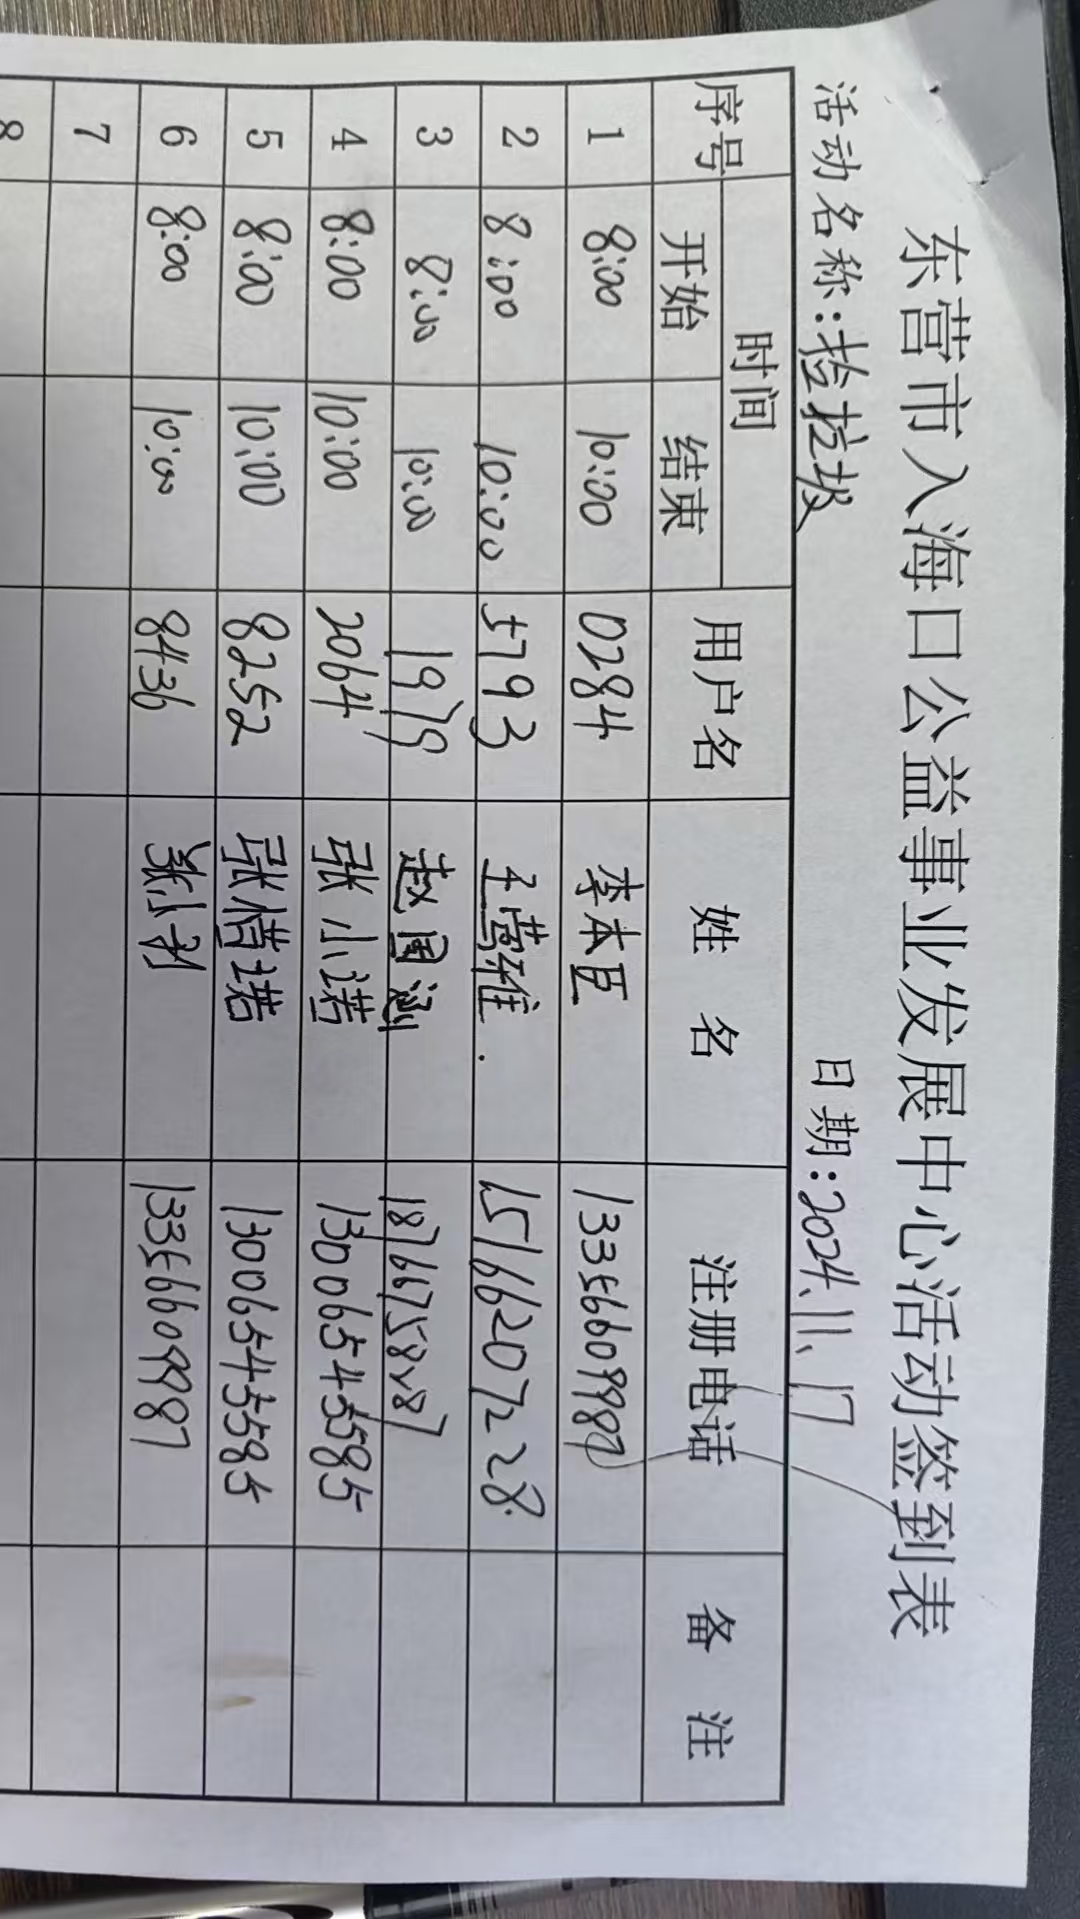 东营市入海口公益事业发展中心活动签到表
活动名称:捡垃圾 日期:2024.11.17
序号 时间 用户名 姓名 注册电话 备注
开始 结束
1 8:00 10:00 0284 李本臣 13356609987
2 8:00 10:00 5793 王莺雅. 15166207228
3 8:00 10:00 1979 赵国涵 18766758287
4 8:00 10:00 2064 张小诺 13006545585
5 8:00 10:00 8252 张惜诺 13006545585
6 8:00 10:00 8436 张小利 13356609987
7
8